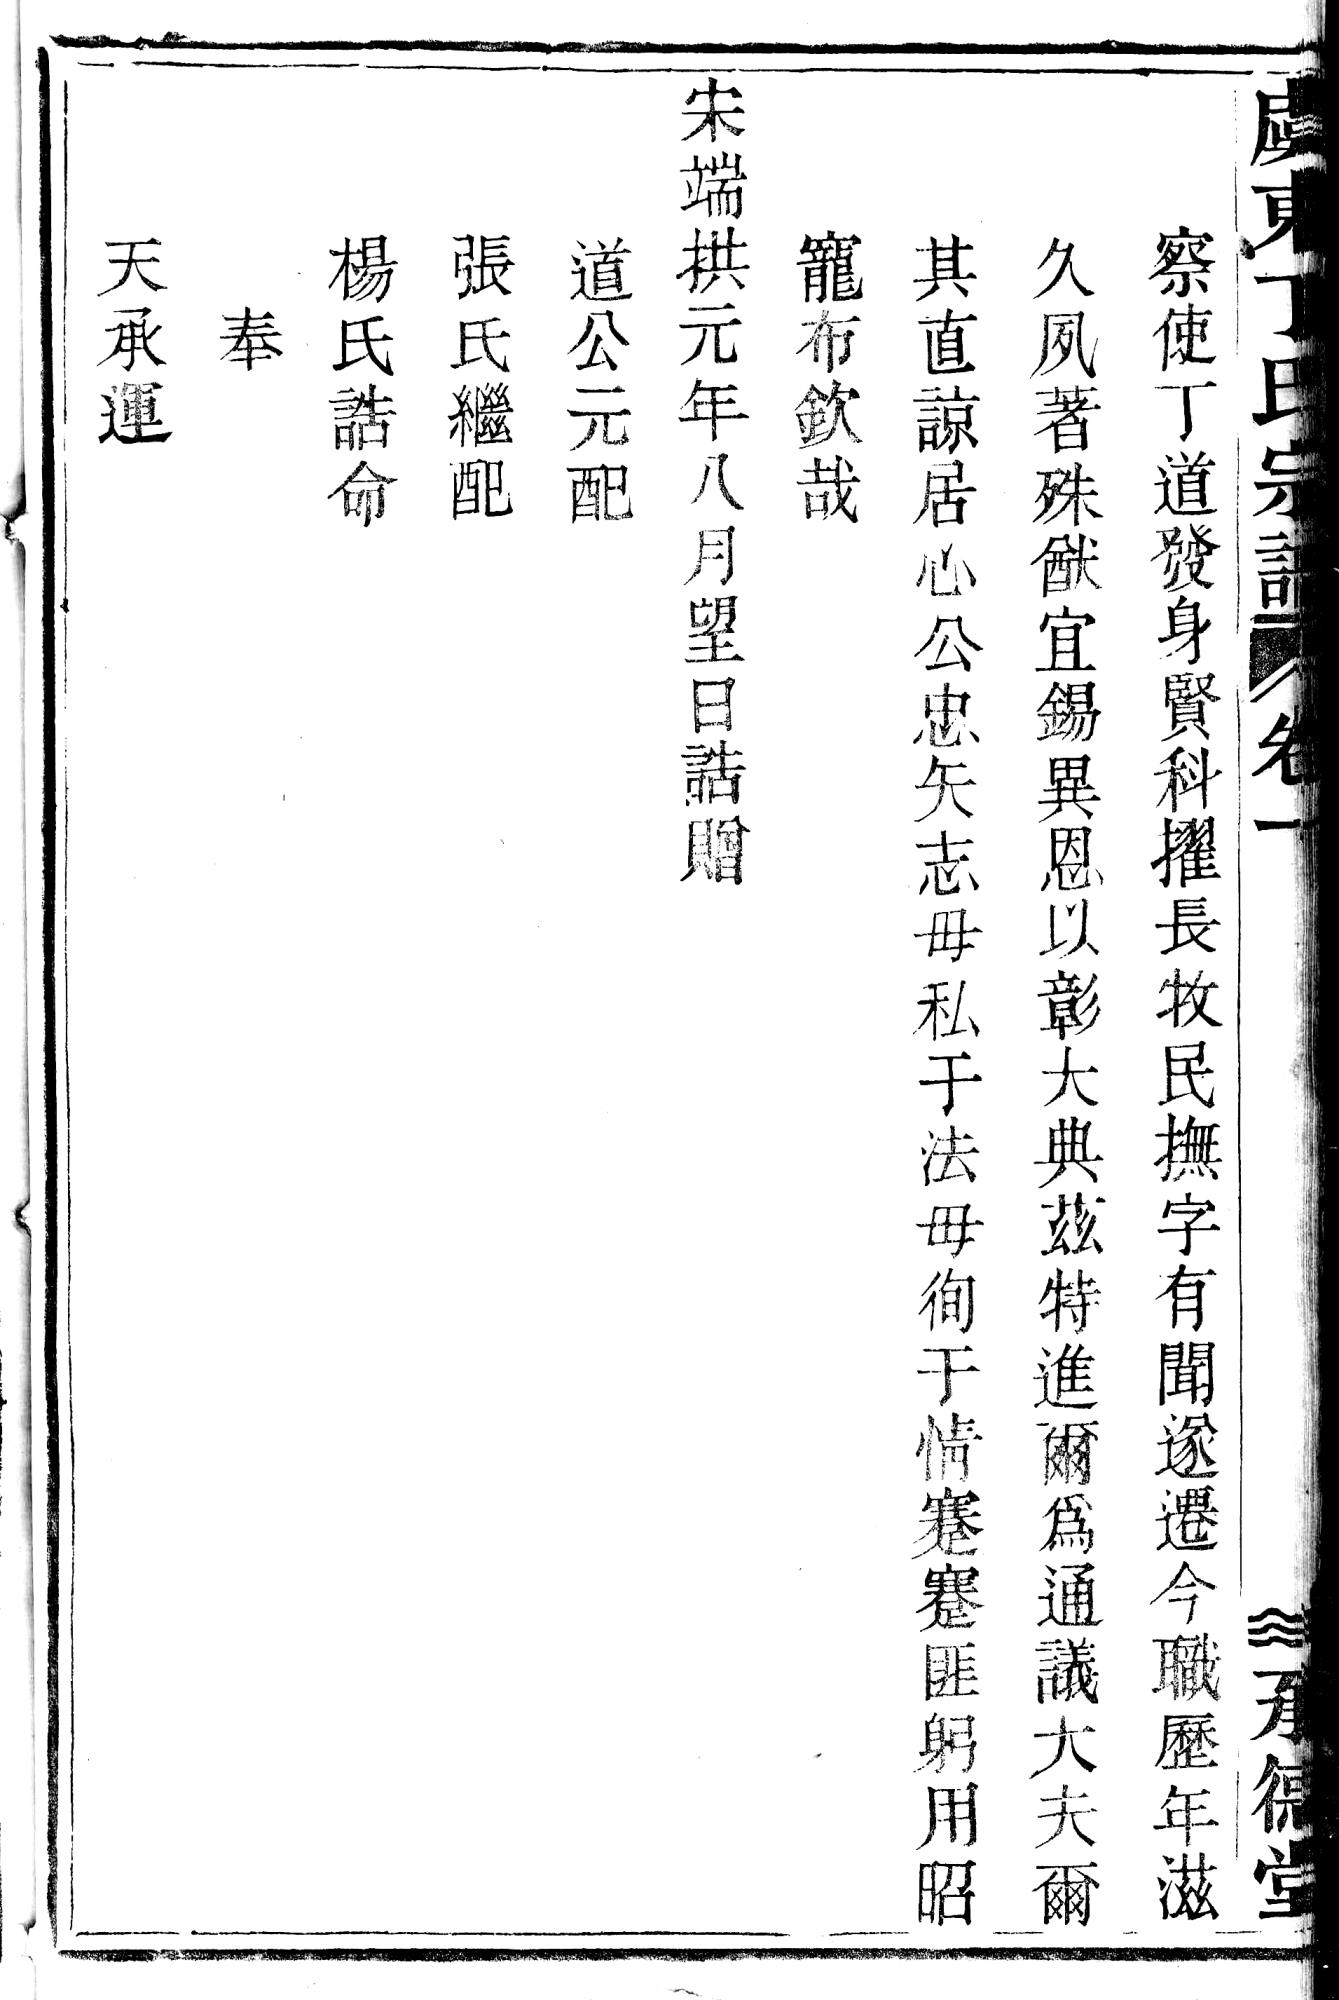 虞東丁氏宗譜 卷一 承德堂
察使丁道發身賢科擢長牧民撫字有聞遂遷今職歷年滋
久夙著殊猷宜錫異恩以彰大典茲特進爾爲通議大夫爾
其直諒居心公忠矢志毋私于法毋徇于情蹇蹇匪躬用昭
寵布欽哉
宋端拱元年八月望日誥贈
道公元配
張氏繼配
楊氏誥命
奉
天承運